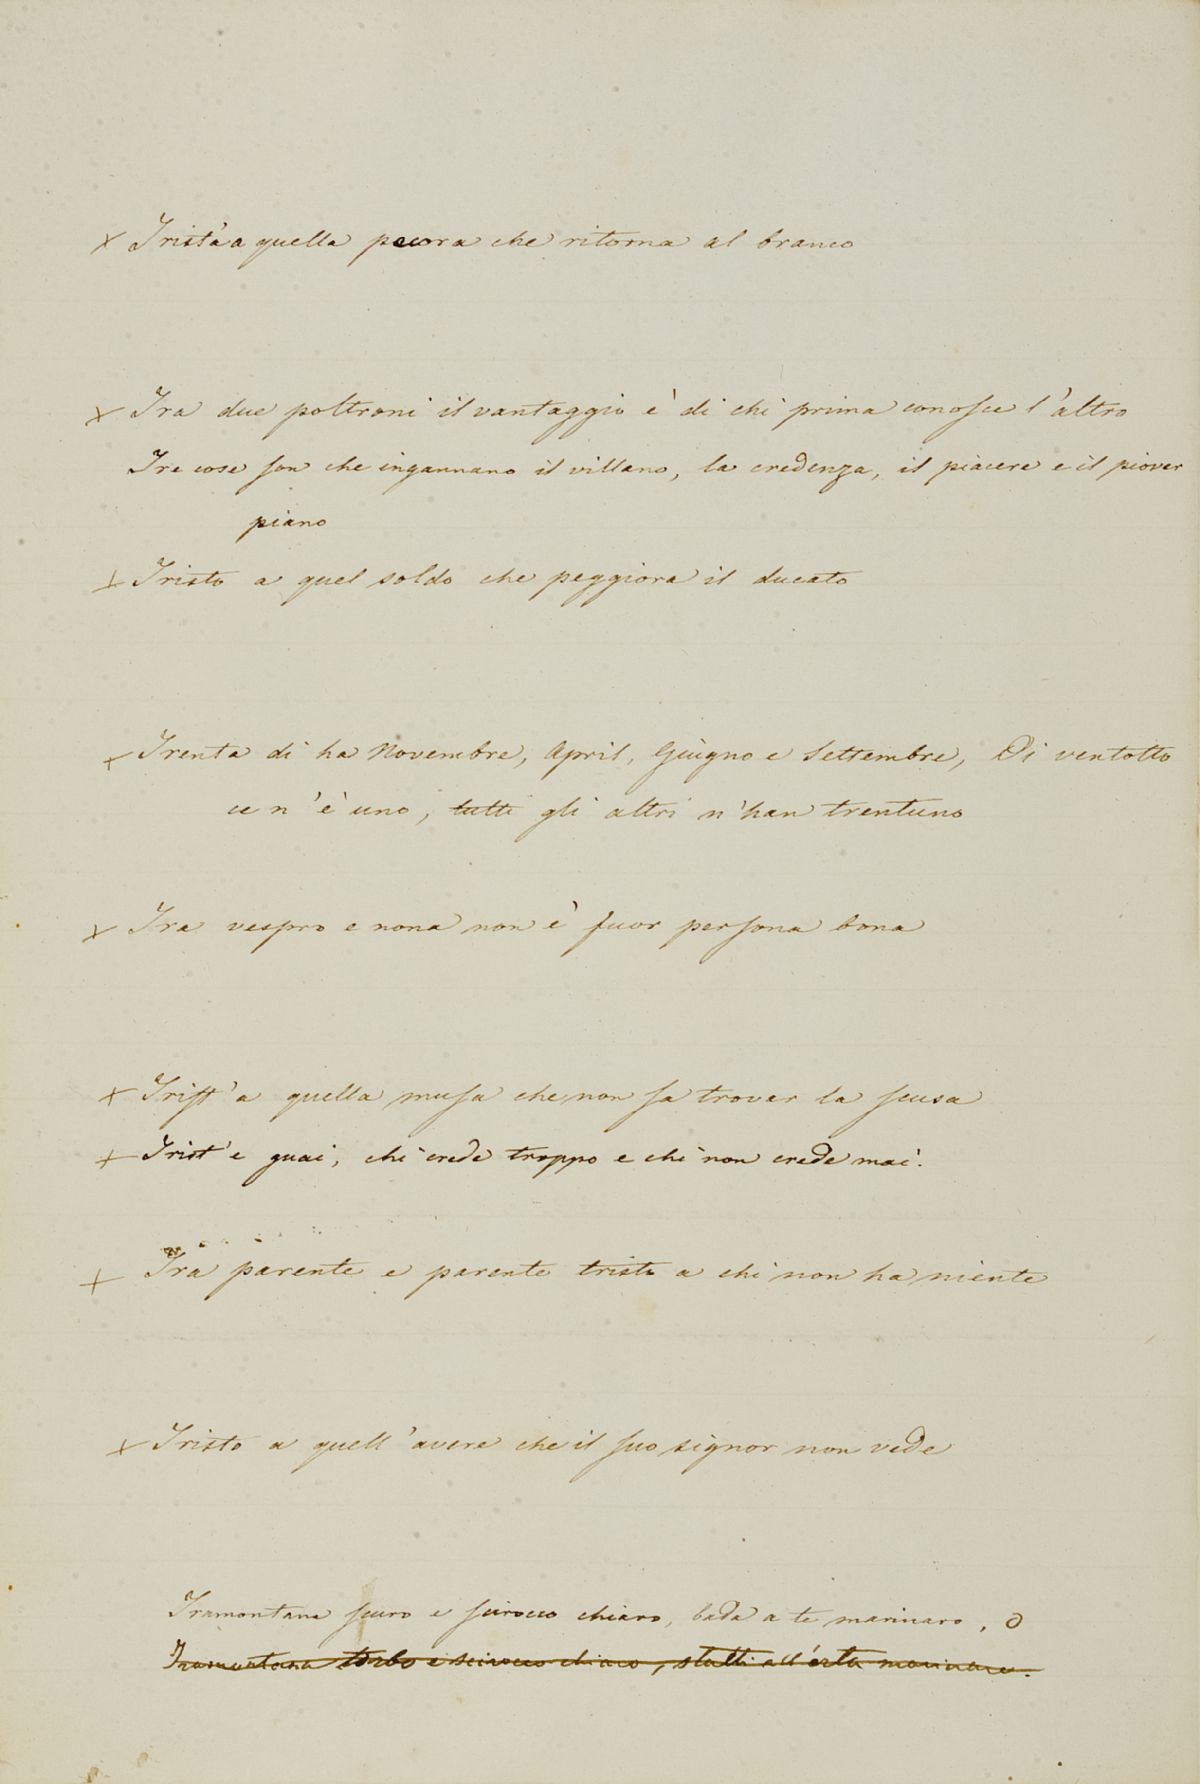 × Trist'a a quella pecora che ritorna al branco
× Tra due poltroni il vantaggio è di chi prima conosce l'altro
Tre cose son che ingannano il villano, la credenza, il piacere e il piover
piano
× Tristo a quel soldo che peggiora il ducato
× Trenta dì ha Novembre, April, Giugno e Settembre, Di ventotto
ce n'è uno, tutti gli altri n'han trentuno
× Tra vespro e nona non è fuor persona bona
× Trist'a quella musa che non sa trovar la scusa
× Trist'e guai, chi crede troppo e chi non crede mai.
× Tra parente e parente tristo a chi non ha niente
× Tristo a quell'avere che il suo signor non vede
Tramontana scuro e scirocco chiaro, bada a te marinaro, o
Tramontana torbo e scirocco chiaro, statti all'erta marinaro.